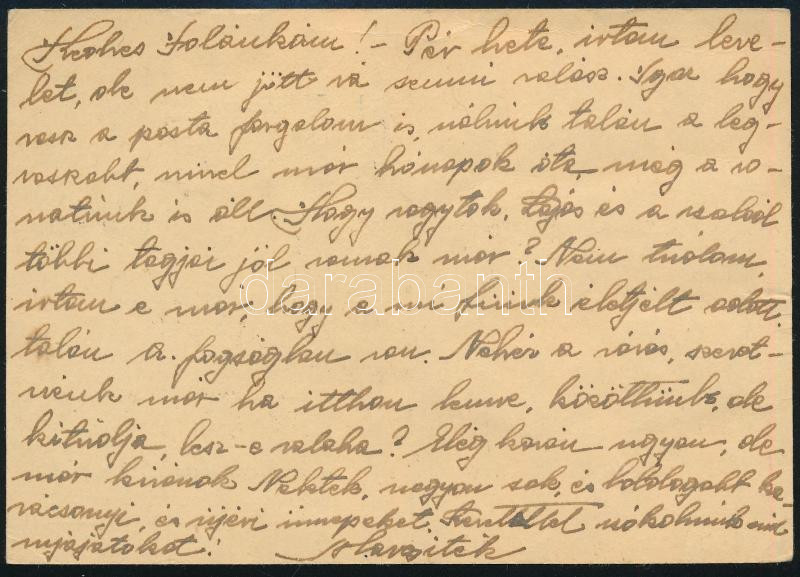 Kedves Jolánkám! – Pár hete, irtam leve-
let, de nem jött rá semmi valasz. Igaz hogy
rosz a posta forgalom is, nálunk talán a leg-
roszabb, mivel már hónapok óta még a vo-
natunk is áll. Hogy vagytok, Lajos és a család
többi tagjai jól vannak már? Nem tudom,
irtam e már, hogy a mi fiunk életjelt adott,
talán a fogságban van. Nehéz a várás, szeret-
nénk már ha itthon lenne, közöttünk, de
ki tudja, lesz-e valaha? Elég korán ugyan, de
már kivánok Nektek, nagyon sok, és boldogabb ka-
rácsonyi, és ujévi ünnepeket. Szeretettel csókolunk mind-
nyájatokat!
darabanth